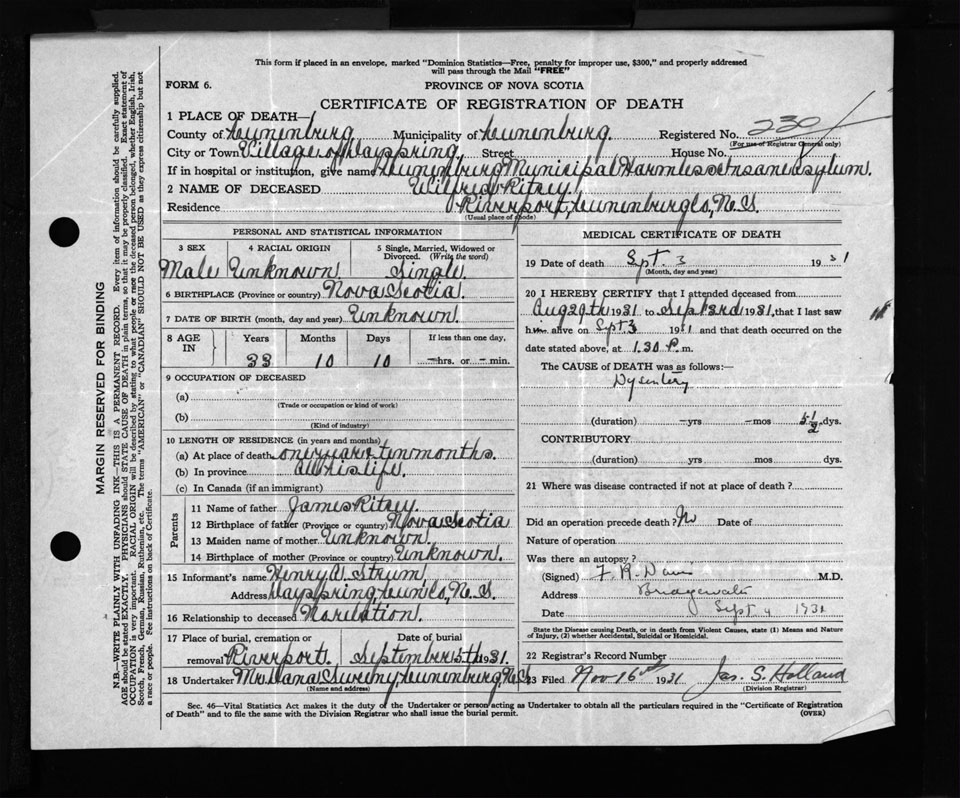 This form if placed in an envelope, marked "Dominion Statistics—Free, penalty for improper use, $300," and properly addressed
will pass through the Mail "FREE"
FORM 6.
PROVINCE OF NOVA SCOTIA
CERTIFICATE OF REGISTRATION OF DEATH
1 PLACE OF DEATH—
County of Lunenburg Municipality of Lunenburg. Registered No. 230
(For use of Registrar General only)
City or Town Village of Dayspring. Street House No.
If in hospital or institution, give name Lunenburg Municipal Harmless Insane Asylum.
2 NAME OF DECEASED Wilfred Ritcey.
Residence Riverport, Lunenburg Co, N.S.
(Usual place of abode)
PERSONAL AND STATISTICAL INFORMATION
3 SEX 4 RACIAL ORIGIN 5 Single, Married, Widowed or
Divorced. (Write the word)
Male Unknown. Single.
6 BIRTHPLACE (Province or country) Nova Scotia.
7 DATE OF BIRTH (month, day and year) Unknown.
8 AGE IN Years Months Days If less than one day,
33 10 10 —hrs. or —min.
9 OCCUPATION OF DECEASED
(a)
(Trade or occupation or kind of work)
(b)
(Kind of industry)
10 LENGTH OF RESIDENCE (in years and months)
(a) At place of death one year & ten months.
(b) In province all his life.
(c) In Canada (if an immigrant)
Parents
11 Name of father James Ritcey.
12 Birthplace of father (Province or country) Nova Scotia
13 Maiden name of mother Unknown.
14 Birthplace of mother (Province or country) Unknown.
15 Informant's name Henry A. Strum,
Address Dayspring, Lun. Co, N.S.
16 Relationship to deceased No relation.
17 Place of burial, cremation or Date of burial
removal Riverport. September 5th 1931.
18 Undertaker Mr. Dana Sweeny, Lunenburg, N.S.
(Name and address)
MEDICAL CERTIFICATE OF DEATH
19 Date of death Sept. 3 1931
(Month, day and year)
20 I HEREBY CERTIFY that I attended deceased from
Aug 29th 1931 to Sept 3rd 1931, that I last saw
him alive on Sept 3 1931 and that death occurred on the
date stated above, at 1.30 P. m.
The CAUSE OF DEATH was as follows:—
Dysentery
(duration) —yrs —mos 5½ dys.
CONTRIBUTORY
(duration) yrs mos dys.
21 Where was disease contracted if not at place of death?
Did an operation precede death? No Date of
Nature of operation
Was there an autopsy?
(Signed) F. R. Davis M.D.
Address Bridgewater
Date Sept 4 1931
State the Disease causing Death, or in death from Violent Causes, state (1) Means and Nature
of Injury, (2) whether Accidental, Suicidal or Homicidal.
22 Registrar's Record Number
23 Filed Nov 16th 1931 Jas. S. Holland
(Division Registrar)
Sec. 46—Vital Statistics Act makes it the duty of the Undertaker or person acting as Undertaker to obtain all the particulars required in the "Certificate of Registration
of Death" and to file the same with the Division Registrar who shall issue the burial permit.
(OVER)
MARGIN RESERVED FOR BINDING
N.B.—WRITE PLAINLY WITH UNFADING INK—THIS IS A PERMANENT RECORD. Every item of information should be carefully supplied.
AGE should be stated EXACTLY. PHYSICIANS should STATE CAUSE OF DEATH in plain terms, so that it may be properly classified. Exact statement of
OCCUPATION is very important. RACIAL ORIGIN will be described by stating to what people or race the deceased person belonged, whether English, Irish,
Scotch, French, German, Russian, Ruthenian, etc. The terms "AMERICAN" or "CANADIAN" SHOULD NOT BE USED as they express citizenship but not
a race or people. See instructions on back of Certificate.